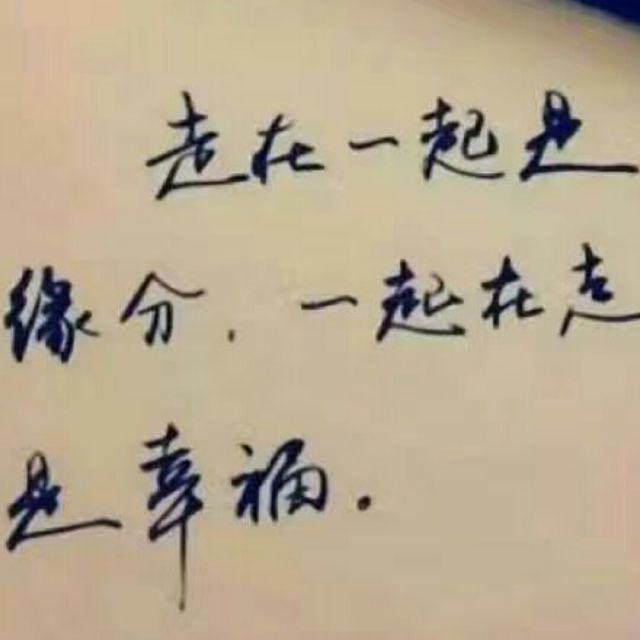 走在一起是
缘分,一起在走
是幸福.